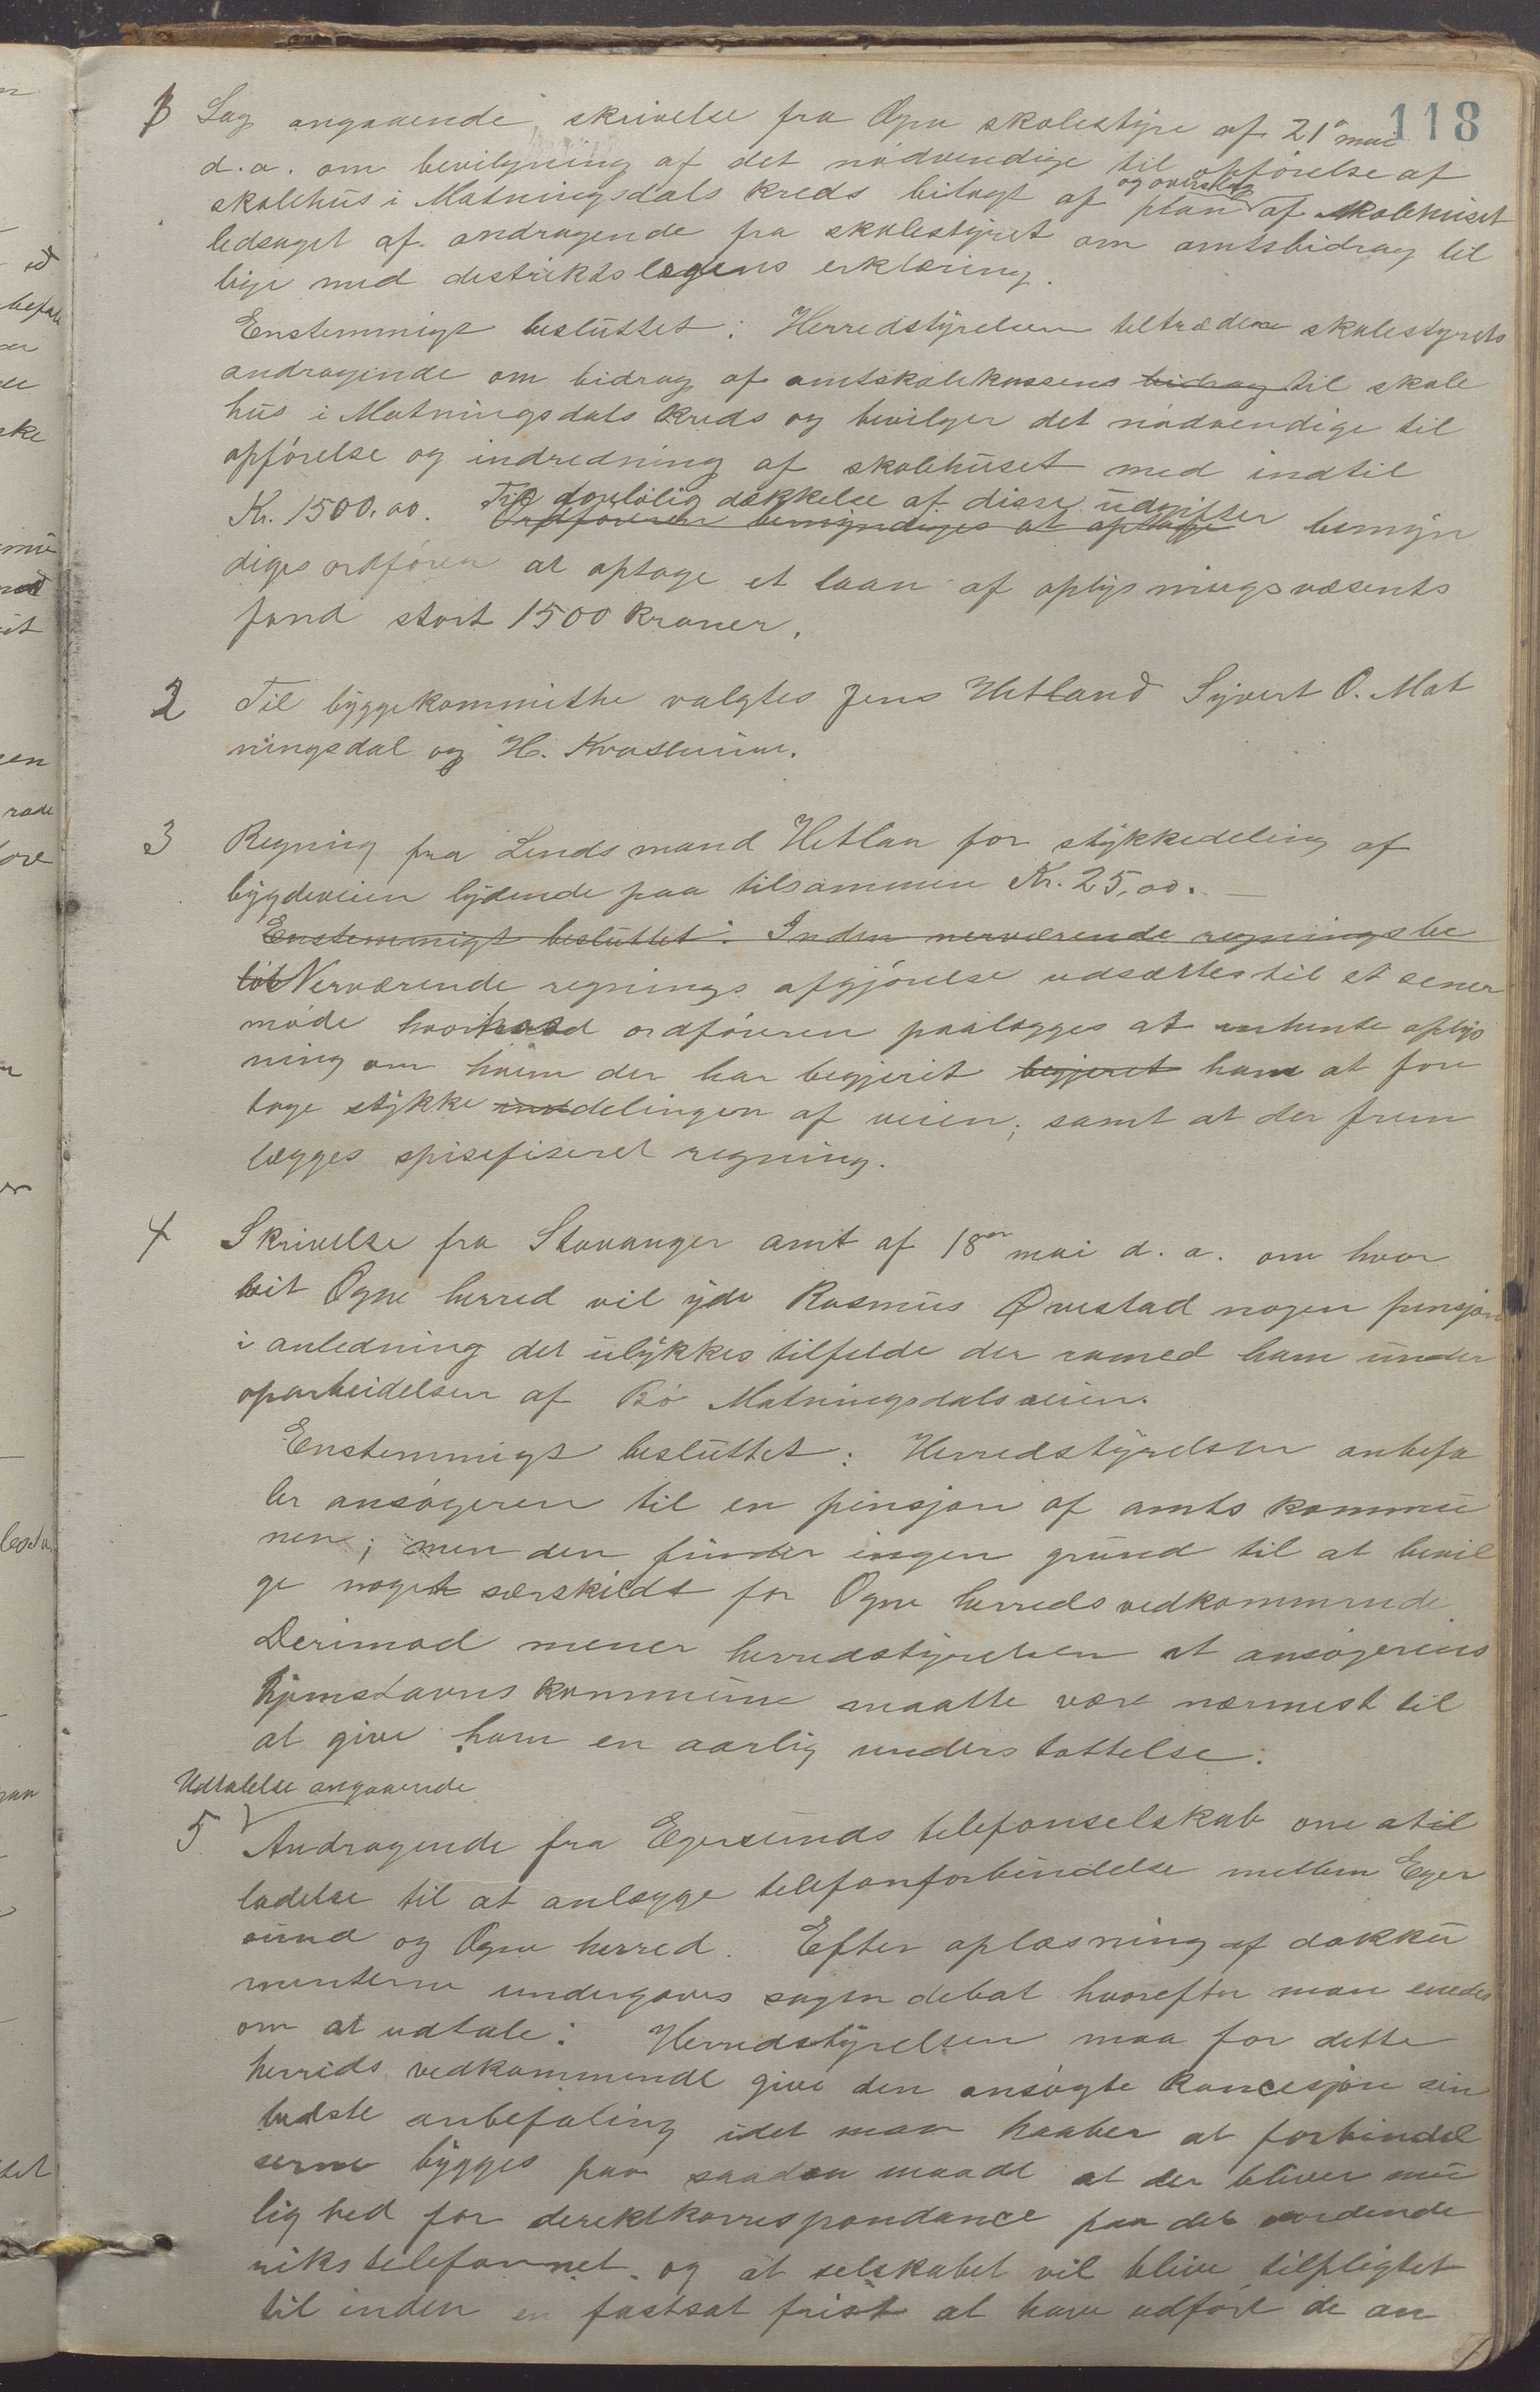 118
1 Sag angaaende skrivelse fra Ogne skolestyre af 21 mai
d.a. om bevilgning af det nødvendige til opførelse af
skolehus i Matningsdals kreds bilagt af plan og overslag af skolehuset
ledsaget af andragende fra skolestyret om amtsbidrag til
lige med destriktslægens erklæring.
Enstemmigt besluttet: Herredstyrelsen tiltræder skolestyrets
andragende om bidrag af amtskolekassens bidrag til skole
hus i Matningsdals kreds og bevilger det nødvendige til
opførelse og indredning af skolehuset med indtil
Til foreløbig dækkelse af disse udgifter
Kr. 1500.00. Ordføreren bemyndiges at optage bemyn
diges ordfører at optage et laan af oplysningsvæsents
fond stort 1500 kroner.
2 Til byggekommithe valgtes Jens Hetland Syvert O. Mat
ningsdal og H. Kvasheim.
3 Regning fra Lendsmand Hetlan for stykkedeling af
bygdeveien lydende paa tilsammen Kr. 25,00.
Enstemmigt besluttet: Inden nerværende regnings be
løb Nerværende regnings afgjørelse udsættes til et sener
møde ordføreren paalægges at indhente oplys
ning om hvem der har begjeret begjeret ham at fore
tage stykke inddelingen af veien; samt at der frem
lægges spisefiseret regning.
4 Skrivelse fra Stavanger amt af 18de mai d.a. om hvor
vit Ogne herred vil yde Rasmus Øvestad nogen pensjon
i anledning det ulykkestilfelde der ramed ham under
oparbeidelsen af Bø Matningsdalsveien.
Enstemmigt besluttet: Herredstyrelsen anbefa
ler ansøgeren til en pensjon af amtskommu
nen; men den finder ingen grund til at bevil
ge noget særskildt for Ogne herreds vedkommende.
Derimod mener herredstyrelsen at ansøgerens
hjemstavns kommune maatte være nærmest til
at give ham en aarlig understøttelse.
Udtalelse angaaende
5 Andragende fra Egersunds telefonselskab om atil
ladelse til at anlægge telefonforbindelse mellem Eger
sund og Ogne herred. Efter oplæsning af dokku
menterne undergaves sagen debat hvorefter man enedes
om at udtale: Herredstyrelsen maa for dette
herreds vedkommende give den ansøgte koncesjon sin
bedste anbefaling idet man haaber at forbindel
serne bygges paa saadan maade at der bliver mu
lighed for derektkorrespondance paa det vordende
rikstelefonnet og at selskabet vil blive tilpligtet
til inden en fastsat frist at have udført de an